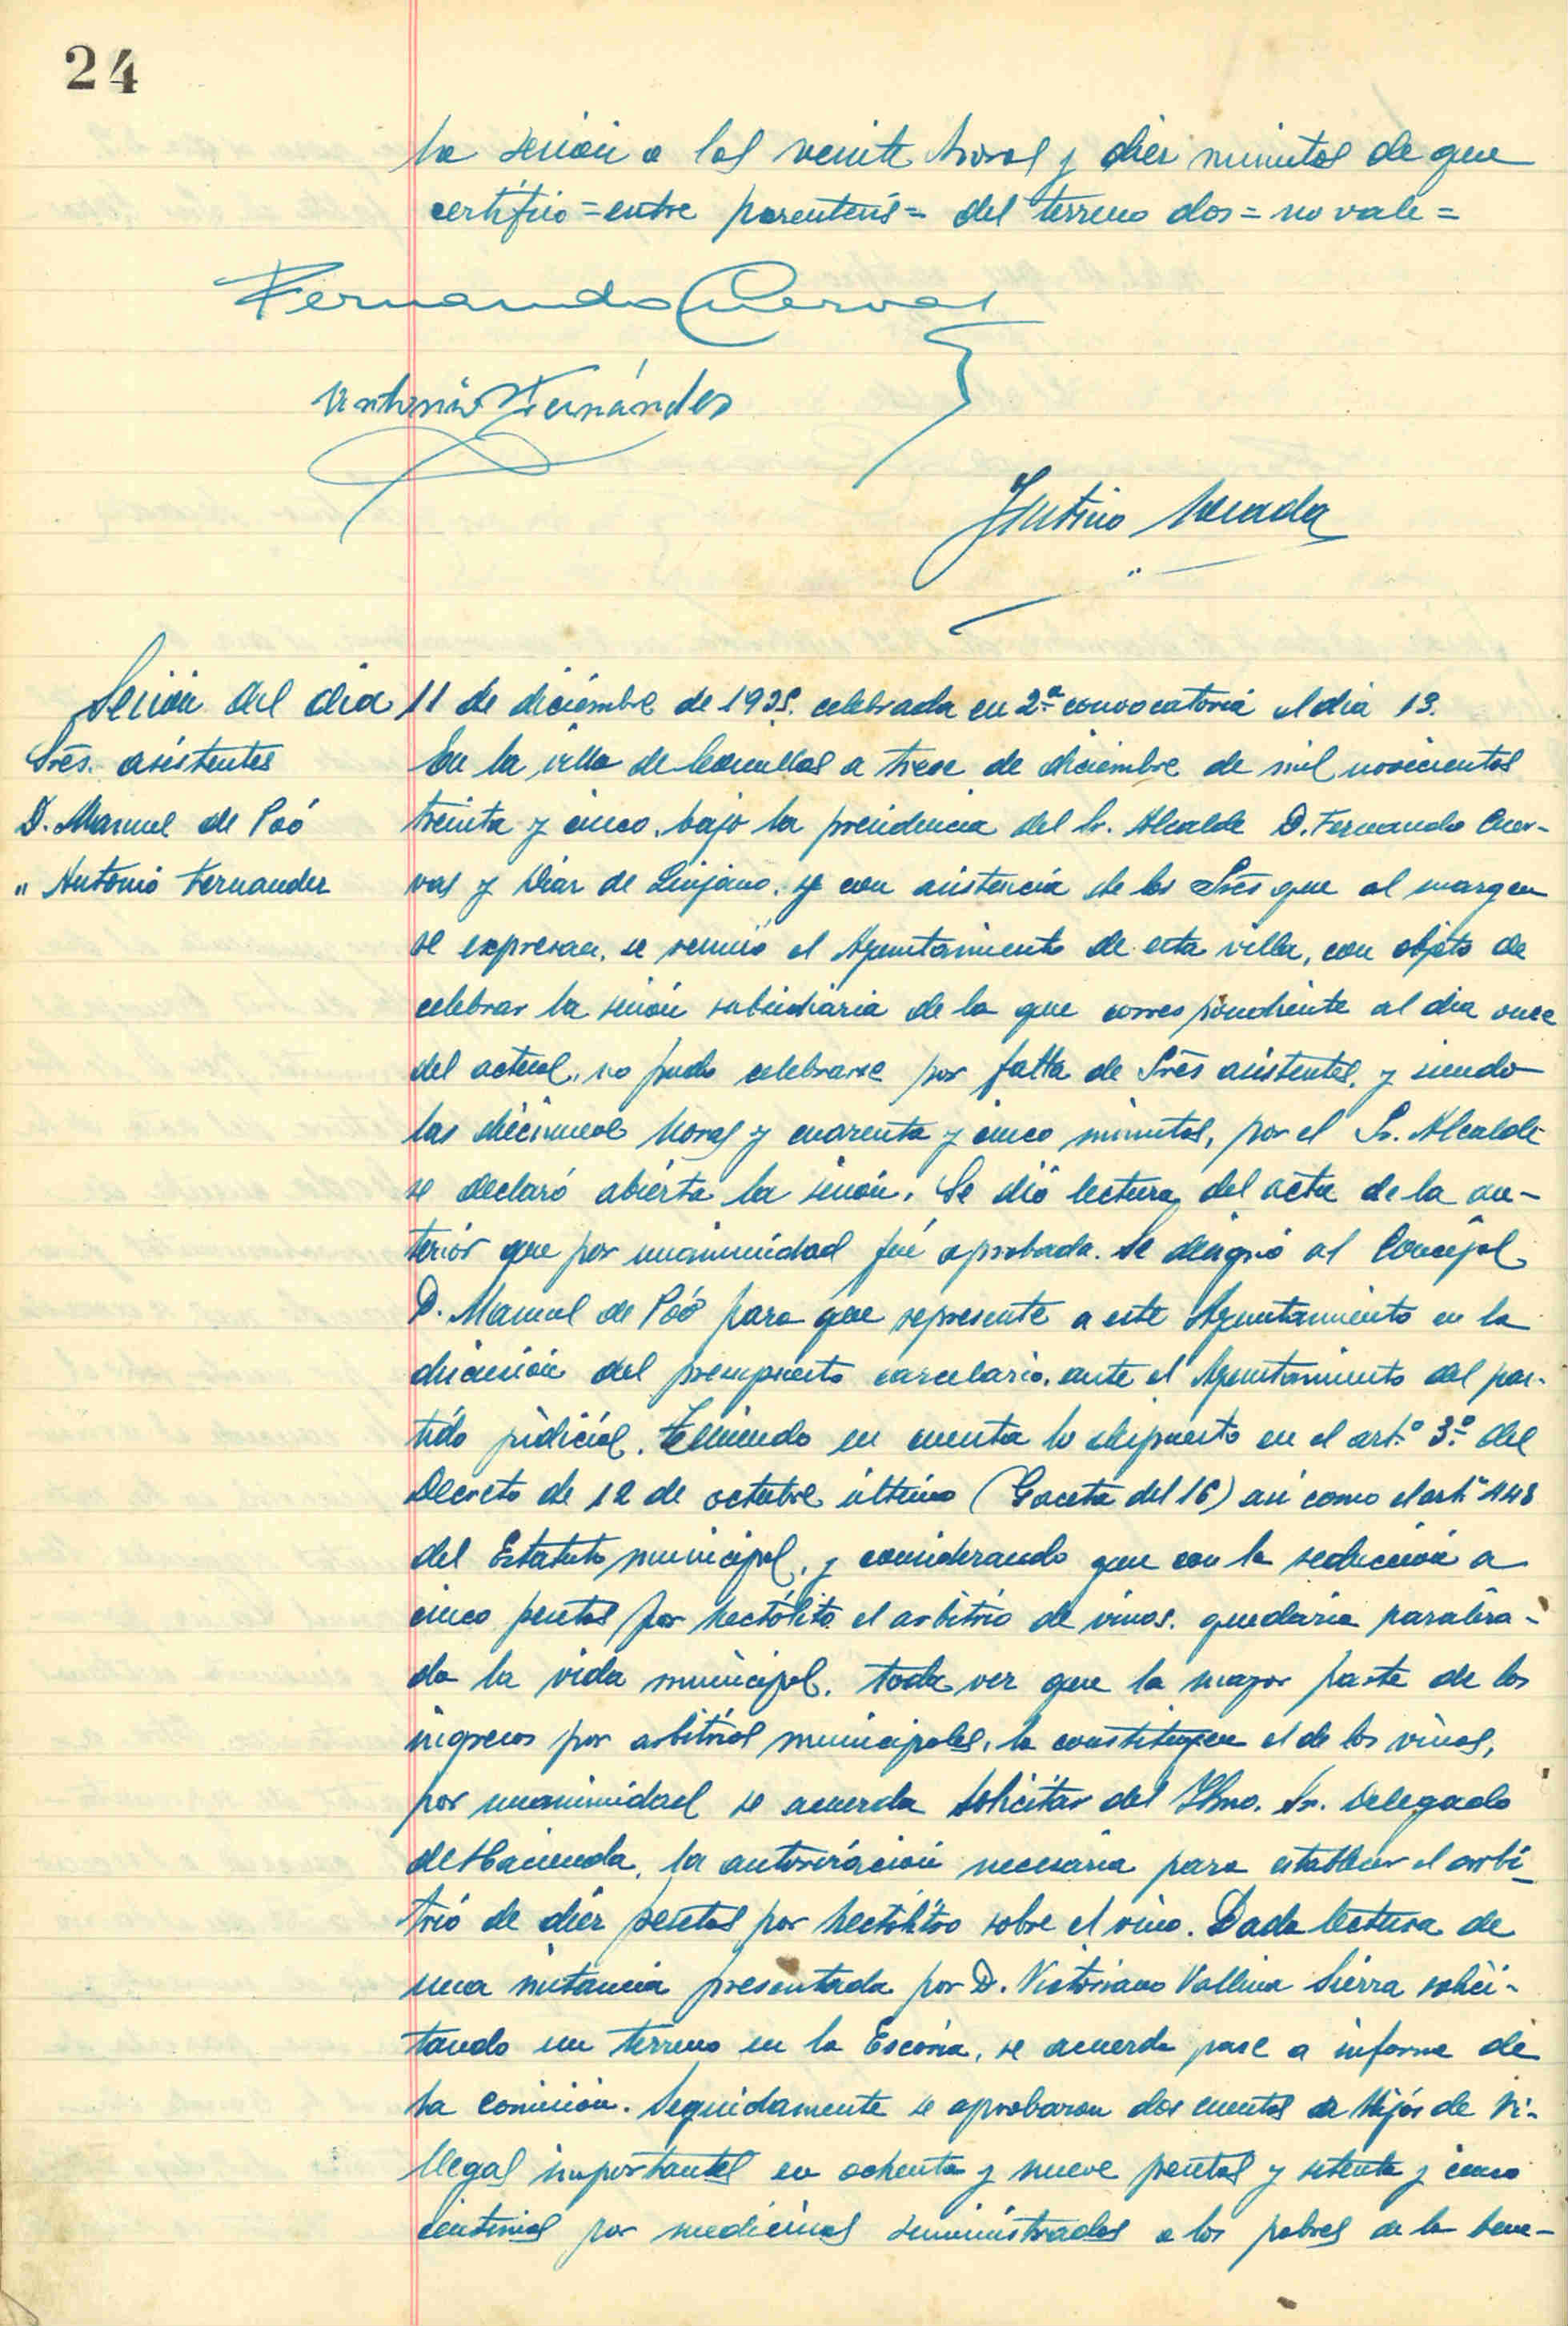 24
la sesión a las veinte horas y diez minutos de que
certifico = entre parentesis = del terreno dos = no vale =
Fernando Cuervas
Antonio Fernández
Justino
Sesión del dia 11 de diciembre de 1935. celebrada en 2ª convocatoria el dia 13.
Sres. asistentes
D. Manuel de Poó
" Antonio Fernandez
En la villa de Comillas a trece de diciembre de mil novecientos
treinta y cinco, bajo la presidencia del Sr. Alcalde D. Fernando Cuer-
vas y Diaz de Quijano, y con asistencia de los Sres que al margen
se expresan, se reunió el Ayuntamiento de esta villa, con objeto de
celebrar la sesión subsidiaria de la que correspondiente al dia once
del actual, no pudo celebrarse por falta de Sres asistentes, y siendo
las diecinueve horas y cuarenta y cinco minutos, por el Sr. Alcalde
se declaró abierta la sesión. Se dió lectura del acta de la an-
terior que por unanimidad fué aprobada. Se designó al Concejal
D. Manuel de Poó para que represente a este Ayuntamiento en la
discusión del presupuesto carcelario, ante el Ayuntamiento del par-
tido judicial. Teniendo en cuenta lo dispuesto en el artº 3º del
Decreto de 12 de octubre último (Gaceta del 16) asi como el artº 448
del Estatuto municipal, y considerando que con la reducción a
cinco pesetas por hectólitro el arbitrio de vinos, quedaria paraliza-
da la vida municipal, toda vez que la mayor parte de los
ingresos por arbitrios municipales, la constituyen el de los vinos,
por unanimidad se acuerda solicitar del Ilmo. Sr. Delegado
de Hacienda, la autorización necesaria para establecer el arbi-
trio de diez pesetas por hectólitro sobre el vino. Dada lectura de
una instancia presentada por D. Victoriano Vallina Sierra solici-
tando un terreno en la Escoria, se acuerda pase a informe de
la comision. Seguidamente se aprobaron dos cuentas de Hijos de Vi-
llegas importantes en ochenta y nueve pesetas y setenta y cinco
centimos por medicinas suministradas a los pobres de la bene-